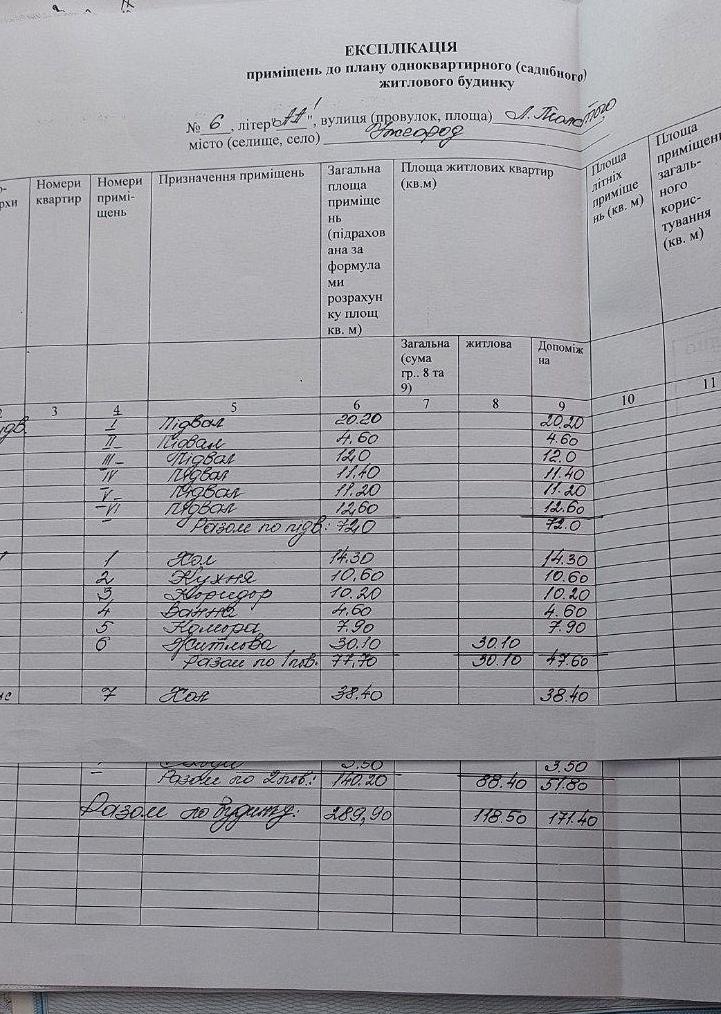 ЕКСПЛІКАЦІЯ
приміщень до плану одноквартирного (садибного)
житлового будинку
№ 6, літер "АА'", вулиця (провулок, площа) Л. Толстого
місто (селище, село) Ужгород
Номери квартир | Номери примі-щень | Призначення приміщень | Загальна площа приміще нь (підрахов ана за формула ми розрахун ку площ кв. м) | Площа житлових квартир (кв.м) | Площа літніх приміще нь (кв. м) | Площа приміщень загаль-ного корис-тування (кв. м)
Загальна (сума гр.. 8 та 9) | житлова | Допоміж на
2 3 4 5 6 7 8 9 10 11
підв. I Підвал 20.20 20.20
II Підвал 4.60 4.60
III Підвал 12,0 12.0
IV Підвал 11.40 11.40
V Підвал 11.20 11.20
VI Підвал 12,60 12.60
Разом по підв: 72,0 72.0
1 1 Хол 14.30 14.30
2 Кухня 10.60 10.60
3 Коридор 10.20 10.20
4 Ванна 4.60 4.60
5 Комора 7.90 7.90
6 Житлова 30.10 30.10
Разом по 1 пов. 77,70 30.10 47.60
7 Хол 38.40 38.40
3.50 3.50
Разом по 2 пов.: 140.20 88.40 51.80
Разом по будинку: 289,90 118.50 171.40